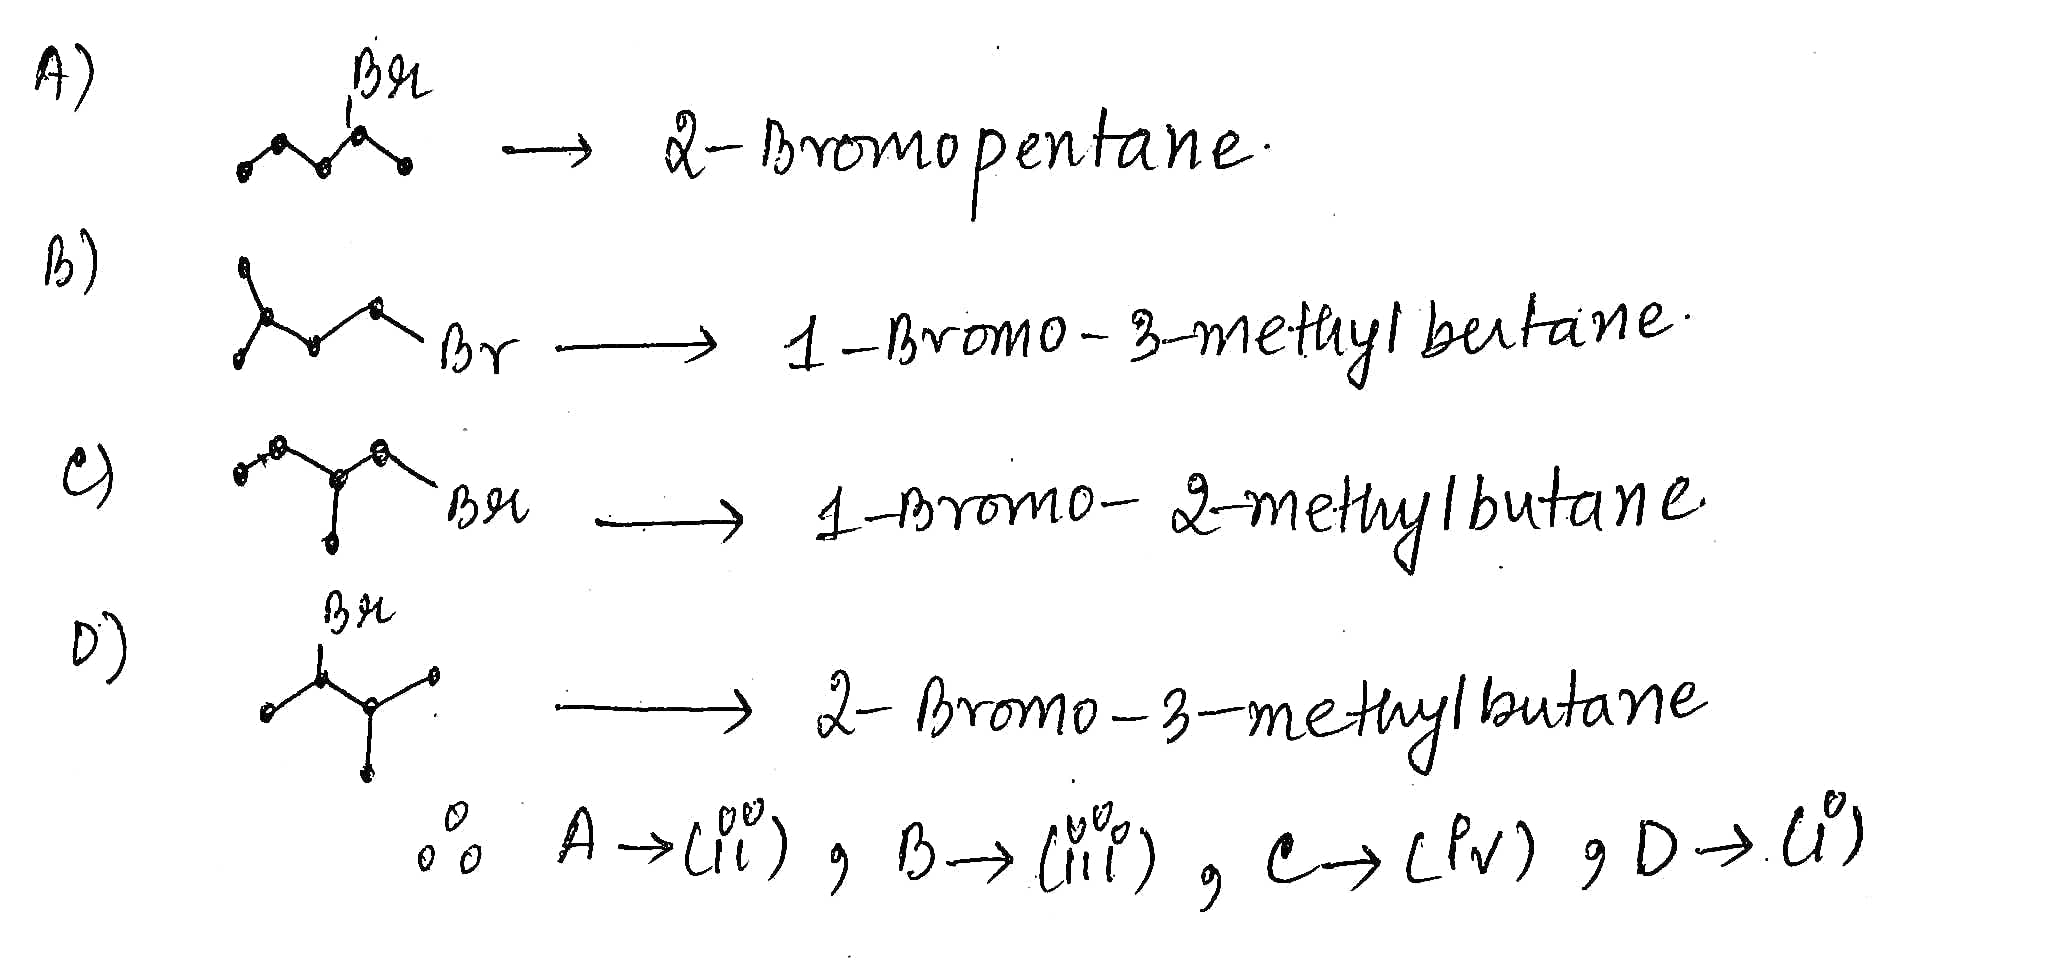 A) Br → 2-Bromopentane.
B) Br → 1-Bromo-3-methyl butane.
C) Br → 1-Bromo-2-methylbutane
D) Br → 2-Bromo-3-methylbutane
∴ A→(ii), B→(iii), C→(iv), D→(i)